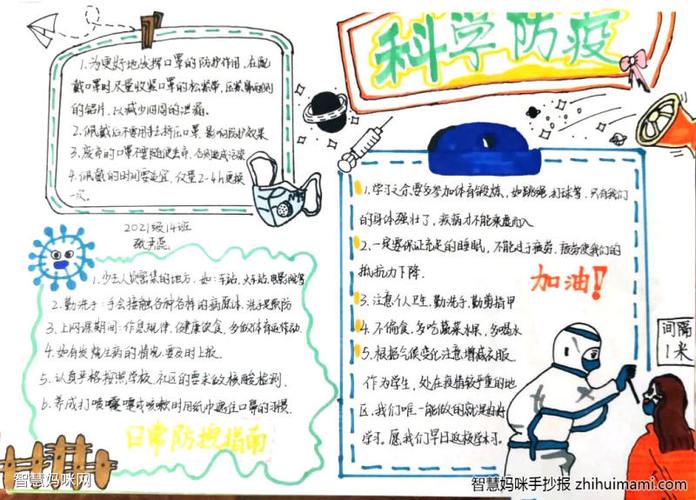 科学防疫
1.为更好地发挥口罩的防护作用，在配
戴口罩时尽量收紧口罩的松紧带，压紧鼻两侧
的铝片，以减少周围的泄漏。
2.佩戴后不要用手挤压口罩，影响防护效果
3.废弃的口罩不要随便丢弃，
4.佩戴的时间要适宜，仅量2-4h更换
一次。
2021级14班
1.少去人员密集的地方，如：车站，火车站，电影院等
2.勤洗手：手会接触各种各样的病原体，洗手是预防
3.上网课期间：作息规律，健康饮食，多做体育运动
4.如有发烧生病的情况，要及时上报。
5.认真严格按照学校，社区的要求做核酸检测.
6.养成打喷嚏或咳嗽时用纸巾遮住口罩的习惯.
日常防控指南
1.学习之余要多参加体育锻炼，如跳绳，打球等.只有我们
的身体强壮了，疾病才不能乘虚而入
2.一定要保证充足的睡眠，不能过于疲劳，疲劳使我们的
抵抗力下降.
3.注意个人卫生，勤洗手，勤剪指甲
4.不偏食，多吃蔬菜水果，多喝水
5.根据气候变化注意增减衣服
作为学生，处在疫情较严重的地
区，我们唯一能做的就是好好
学习。愿我们早日返校学习.
加油！
间隔
1米
智慧妈咪网
智慧妈咪手抄报 zhihuimami.com